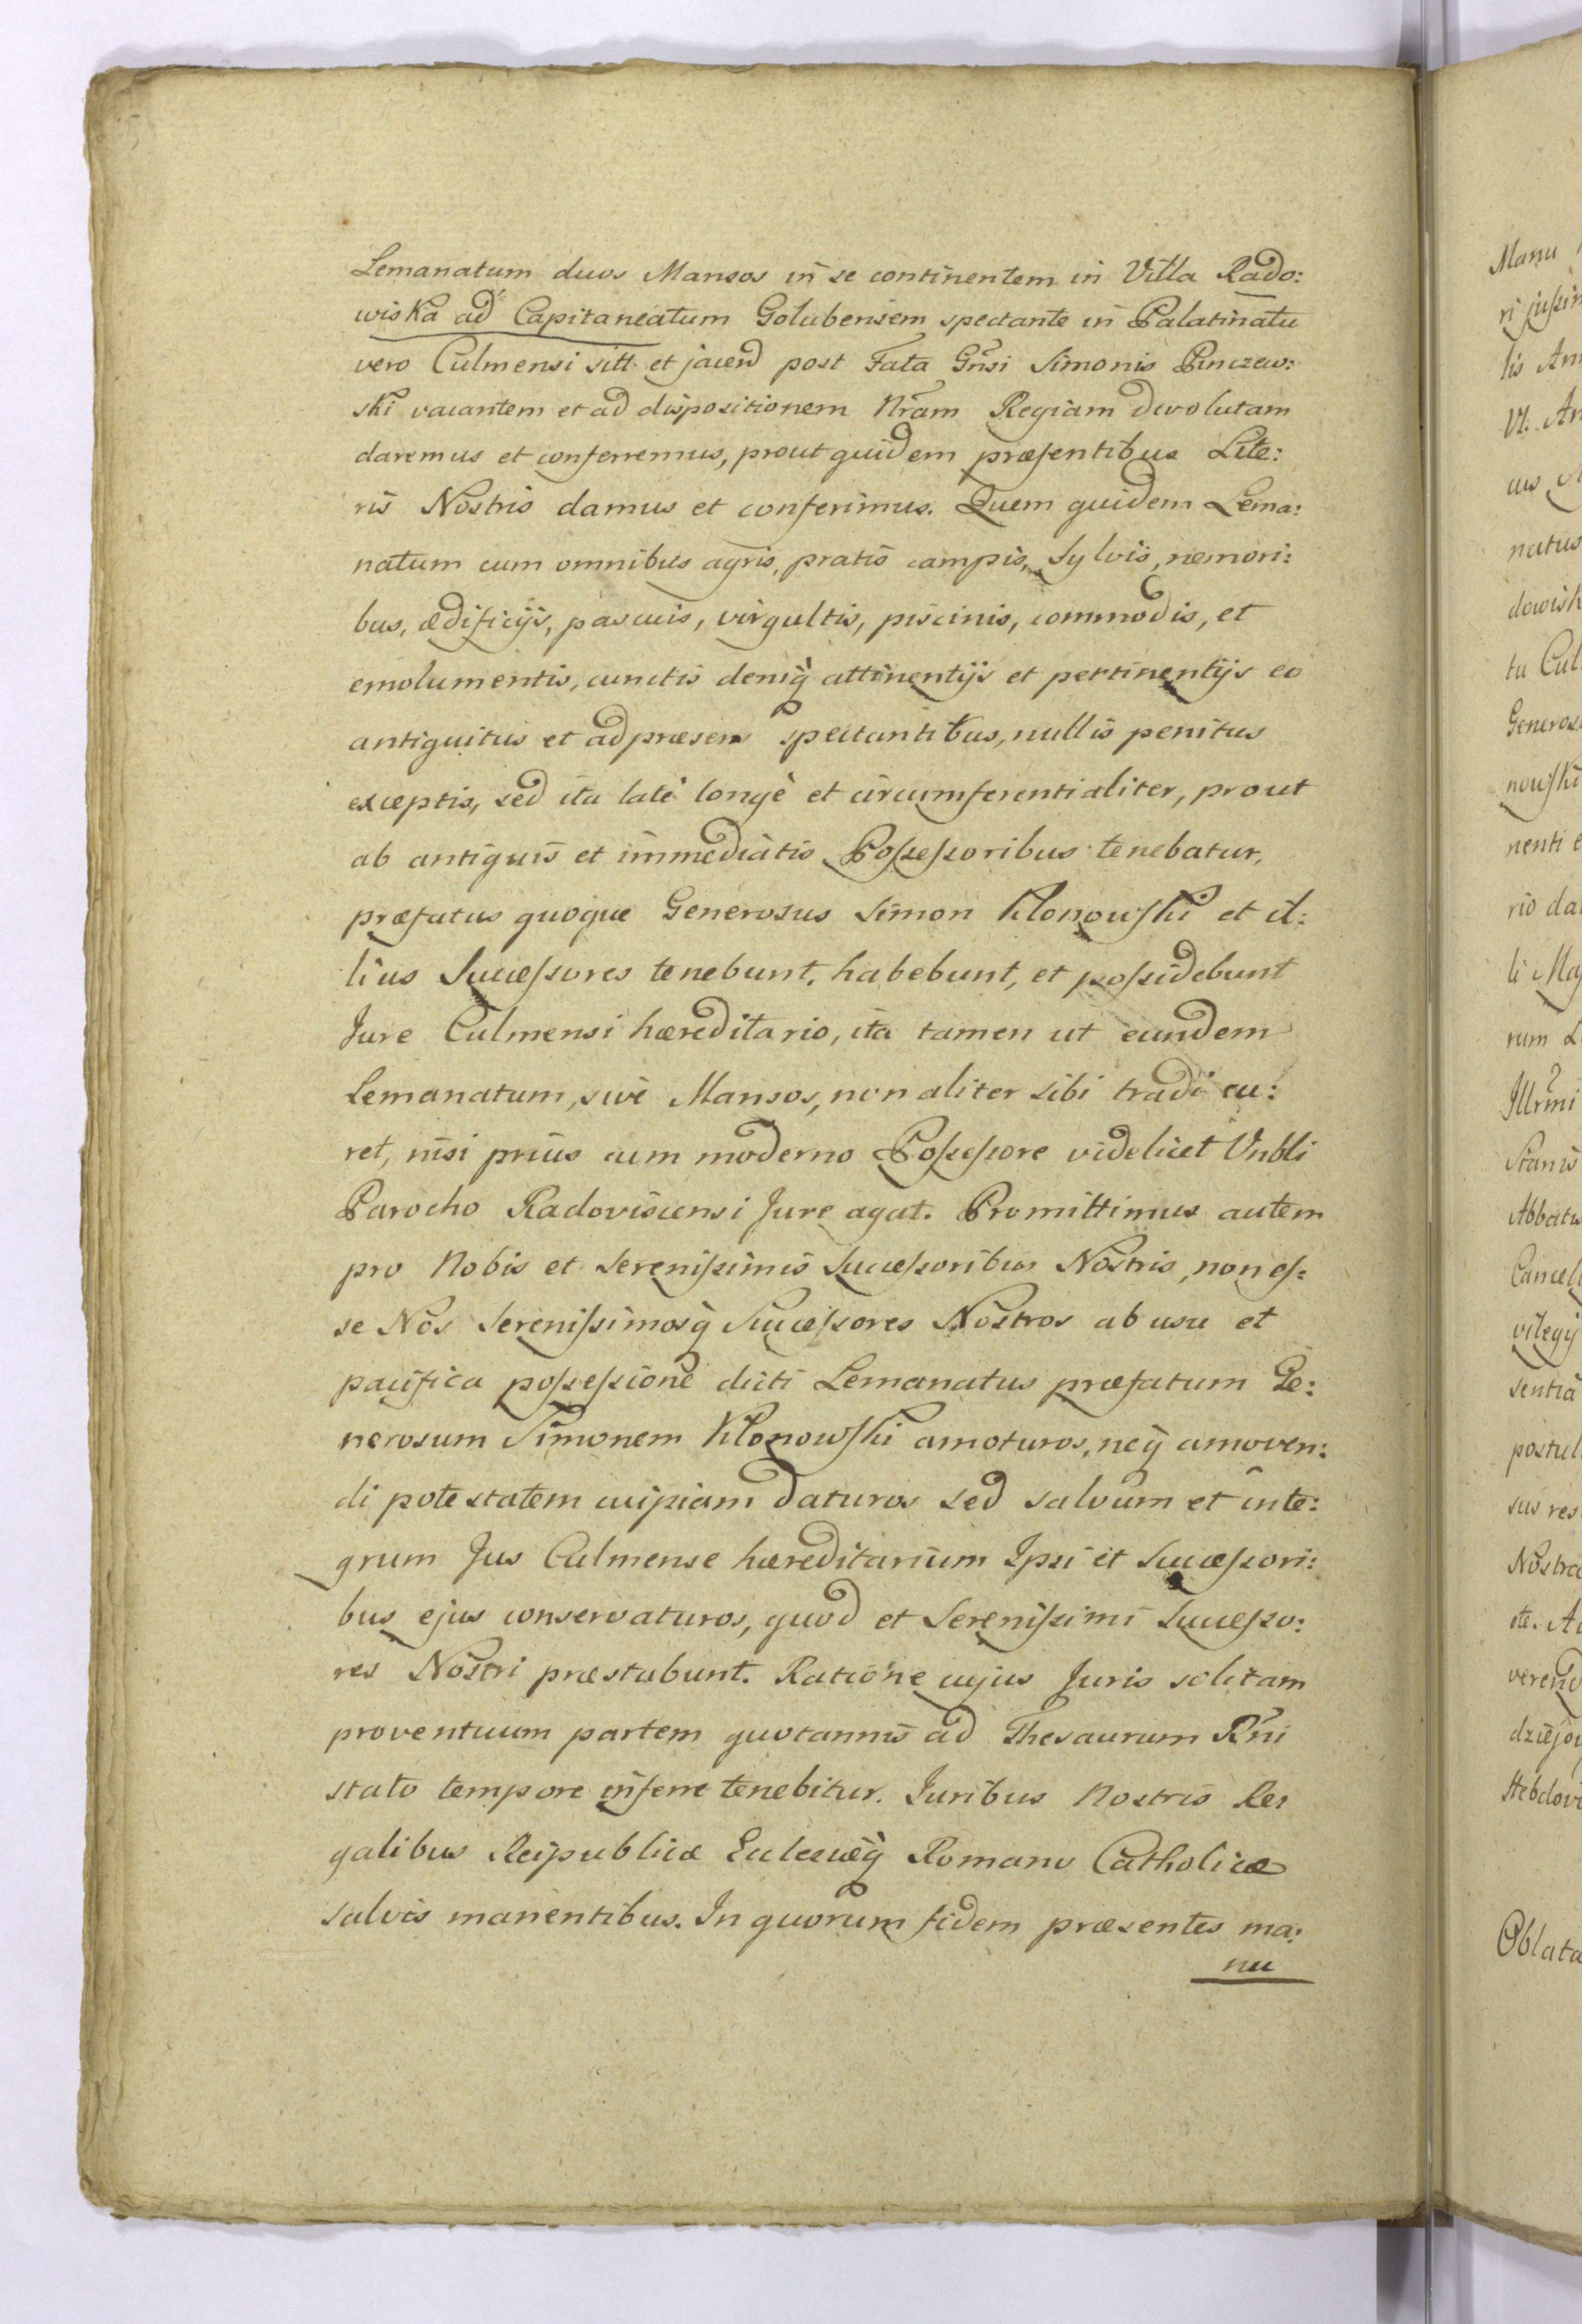 Lemanatum duos Mansos in se continentem in Villa Rado:
wiska ad Capitaneatum Golubensem spectante in Palatinatu
vero Culmensi sitt. et jacend post Fata Gnsi Simonis Pinczew:
ski vacantem et ad dispositionem Nram Regiam devolutam
daremus et conferremus, prout quidem præsentibus Lite:
ris Nostris damus et conferimus. Quem quidem Lema:
natum cum omnibus agris, pratis campis, Sylvis, nemori:
bus, ædificijs, pascuis, virgultis, piscinis, commodis, et
emolumentis, cunctis deniq attinentijs et pertinentijs eo
antiquitus et ad præsens spectantibus, nullis penitus
exceptis, sed ita latè longè et circumferentialiter, prout
ab antiquis et immediatis Possessoribus tenebatur,
præfatus quoque Generosus Simon Klonowski et il:
lius Successores tenebunt, habebunt, et possidebunt
Jure Culmensi hæreditario, ita tamen ut eundem
Lemanatum, sive Mansos, non aliter sibi tradi cu:
ret, nisi prius cum moderno Possessore videlicet Vnbli
Parocho Radoviscensi Jure agat. Promittimus autem
pro Nobis et Serenissimis Successoribus Nostris, non es:
se Nos Serenissimosq Successores Nostros ab usu et
pacifica possessione dicti Lemanatus præfatum Ge:
nerosum Simonem Klonowski amoturos, neq amoven:
di potestatem cuipiam daturos sed salvum et inte:
grum Jus Culmense hæreditarium Ipsi et Successori:
bus ejus conservaturos, quod et Serenissimi Successo:
res Nostri præstabunt. Ratione cujus Juris solitam
proventuum partem quotannis ad Thesaurum Rni
stato tempore inferre tenebitur. Juribus Nostris Re:
galibus Reipublicæ Eclesiæq Romano Catholicæ
salvis manentibus. In quorum fidem præsentes ma:
nu
Manu
ri jussim
lis Ann
VI. An
natus
dowisk
tu Cul
Generos
nowski
nenti e
rio da
li Maj
rum L
Illrmi
Stanis
Abbatu
Cancell
vilegij
sentia
postul
sus res
Nostra
verend
dziejow
Hebdovi
Oblata